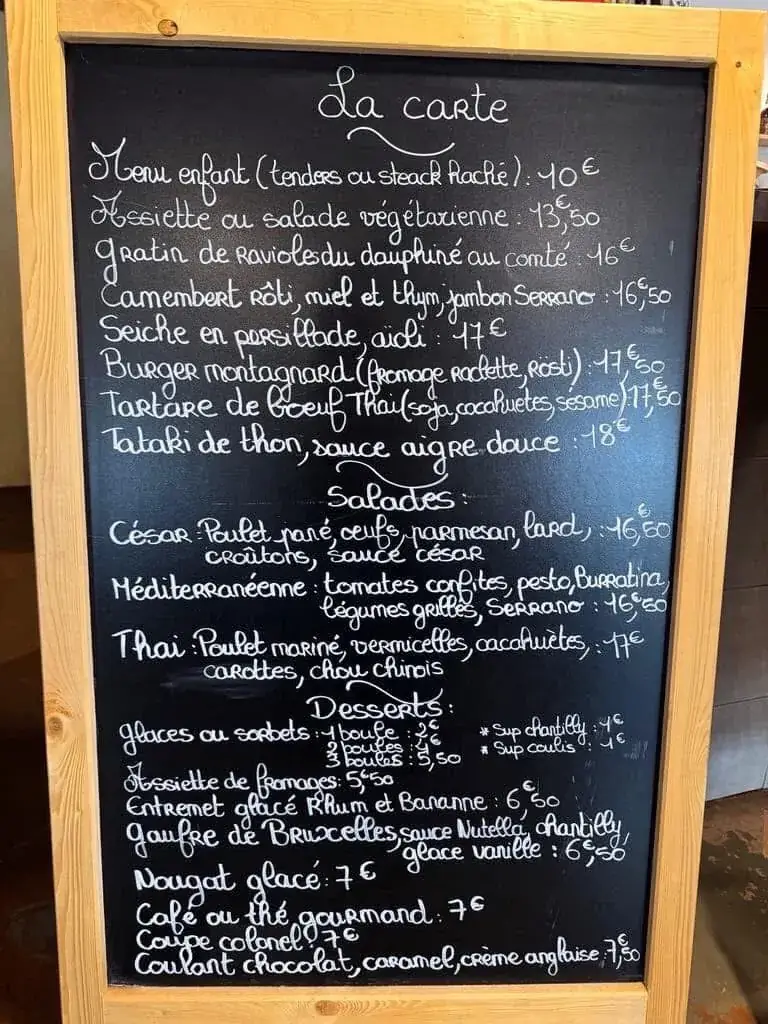 La carte
Menu enfant (tenders ou steack haché) : 10€
Assiette ou salade végétarienne : 13€,50
Gratin de Ravioles du dauphiné au comté : 16€
Camembert Rôti, miel et thym, jambon Serrano : 16€,50
Seiche en persillade, aïoli : 17€
Burger montagnard (fromage Raclette, Rösti) : 17€,50
Tartare de boeuf Thaï (soja, cacahuetes, sesame) : 17€,50
Tataki de thon, sauce aigre douce : 18€
Salades :
César : Poulet pané, oeufs, parmesan, lard, : 16€,50
croûtons, sauce césar
Méditerranéenne : tomates confites, pesto, Burratina,
légumes grillés, Serrano : 16€,50
Thaï : Poulet mariné, vermicelles, cacahuètes, : 17€
carottes, chou chinois
Desserts :
Glaces ou sorbets : 1 boule : 2€ * Sup chantilly : 1€
2 boules : 4€ * Sup coulis : 1€
3 boules : 5,50
Assiette de fromages : 5€50
Entremet glacé Rhum et Bananne : 6€50
Gaufre de Bruxcelles, sauce Nutella, chantilly,
glace vanille : 6€,50
Nougat glacé : 7€
Café ou thé gourmand : 7€
Coupe colonel : 7€
Coulant chocolat, caramel, crème anglaise : 7€,50